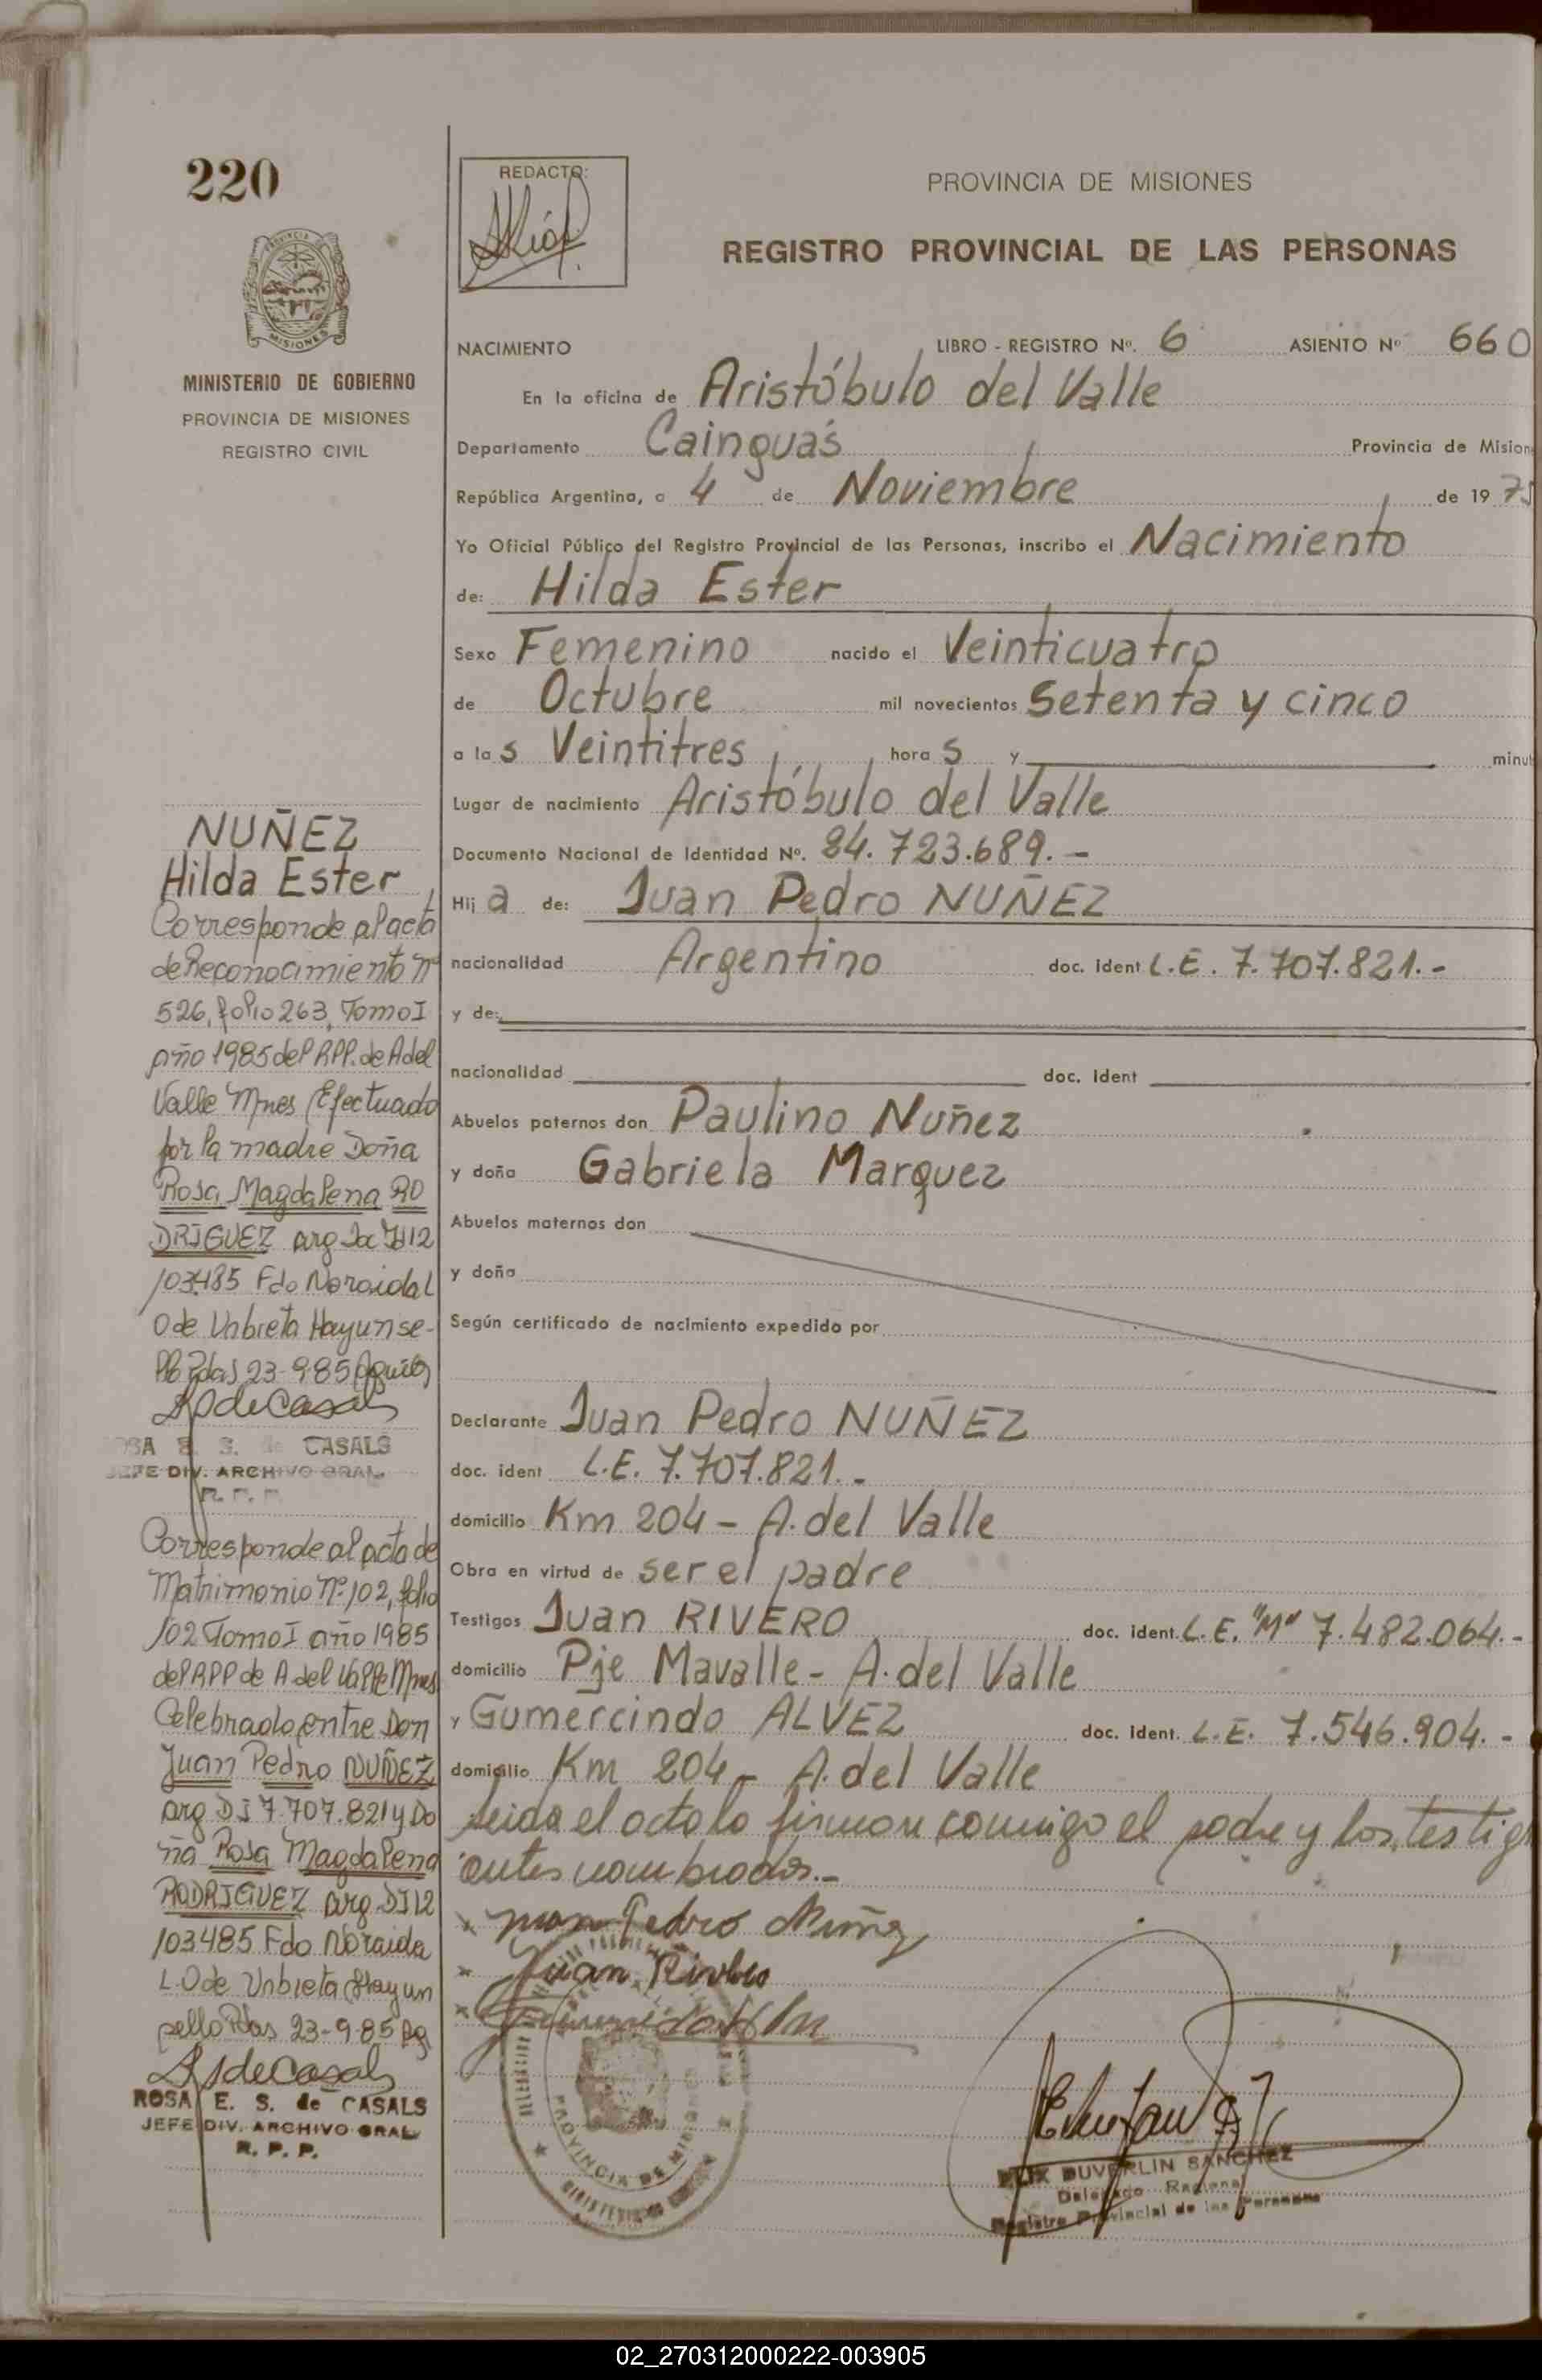 220
PROVINCIA DE MISIONES
MINISTERIO DE GOBIERNO
PROVINCIA DE MISIONES
REGISTRO CIVIL
NUÑEZ
Hilda Ester
Corresponde al acta
de Reconocimiento Nº
526, folio 263, Tomo I
año 1985 del RPP. de A del
Valle Mnes Efectuado
por la madre Doña
Rosa Magdalena RO
DRIGUEZ arg
103485 Fdo Noraida L
O de Urbieta Hay un se-
23-9-85
ROSA E. S. de CASALS
JEFE DIV. ARCHIVO GRAL
R. P. P.
Corresponde al acta de
Matrimonio Nº 102, folio
102 Tomo I año 1985
del RPP de A del Valle Mnes
Celebrado entre Don
Juan Pedro NUÑEZ
arg DI 7.707.821 y Do
ña Rosa Magdalena
RODRIGUEZ arg DI 12
103485 Fdo Noraida
L. O de Urbieta Hay un
sello 23-9-85
ROSA E. S. de CASALS
JEFE DIV. ARCHIVO GRAL
R. P. P.
REDACTO:
PROVINCIA DE MISIONES
REGISTRO PROVINCIAL DE LAS PERSONAS
NACIMIENTO LIBRO - REGISTRO Nº. 6 ASIENTO Nº 660
En la oficina de Aristóbulo del Valle
Departamento Cainguás Provincia de Mision
República Argentina, a 4 de Noviembre de 19 75
Yo Oficial Público del Registro Provincial de las Personas, inscribo el Nacimiento
de: Hilda Ester
Sexo Femenino nacido el Veinticuatro
de Octubre mil novecientos Setenta y cinco
a las Veintitres horas y minut
Lugar de nacimiento Aristóbulo del Valle
Documento Nacional de Identidad Nº. 24.723.689.-
Hija de: Juan Pedro NUÑEZ
nacionalidad Argentino doc. ident L.E. 7.707.821.-
y de:
nacionalidad doc. ident
Abuelos paternos don Paulino Nuñez
y doña Gabriela Marquez
Abuelos maternos don
y doña
Según certificado de nacimiento expedido por
Declarante Juan Pedro NUÑEZ
doc. ident L.E. 7.707.821.-
domicilio Km 204 - A. del Valle
Obra en virtud de ser el padre
Testigos Juan RIVERO doc. ident. L.E. "M" 7.482.064.-
domicilio Pje Mavalle - A. del Valle
y Gumercindo ALVEZ doc. ident. L.E. 7.546.904.-
domicilio Km 204 - A. del Valle
Leida el acta la firman conmigo el padre y los testig
antes nombrados.-
Juan Pedro Nuñez
Juan Rivero
PROVINCIA DE MISIONES
FELIX DUVERLIN SANCHEZ
Delegado Regional
Registro Provincial de las Personas
02_270312000222-003905